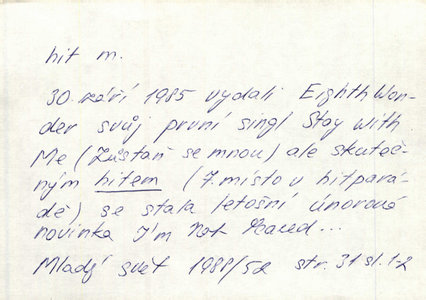 hit m.
30. září 1985 vydali Eighth Won-
der svůj první singl Stay with
Me (Zůstaň se mnou) ale skuteč-
ným hitem (7. místo v hitpará-
dě) se stala letošní únorová
novinka I'm Not Scared...
Mladý svět 1988/52 str. 31 sl. 1-2